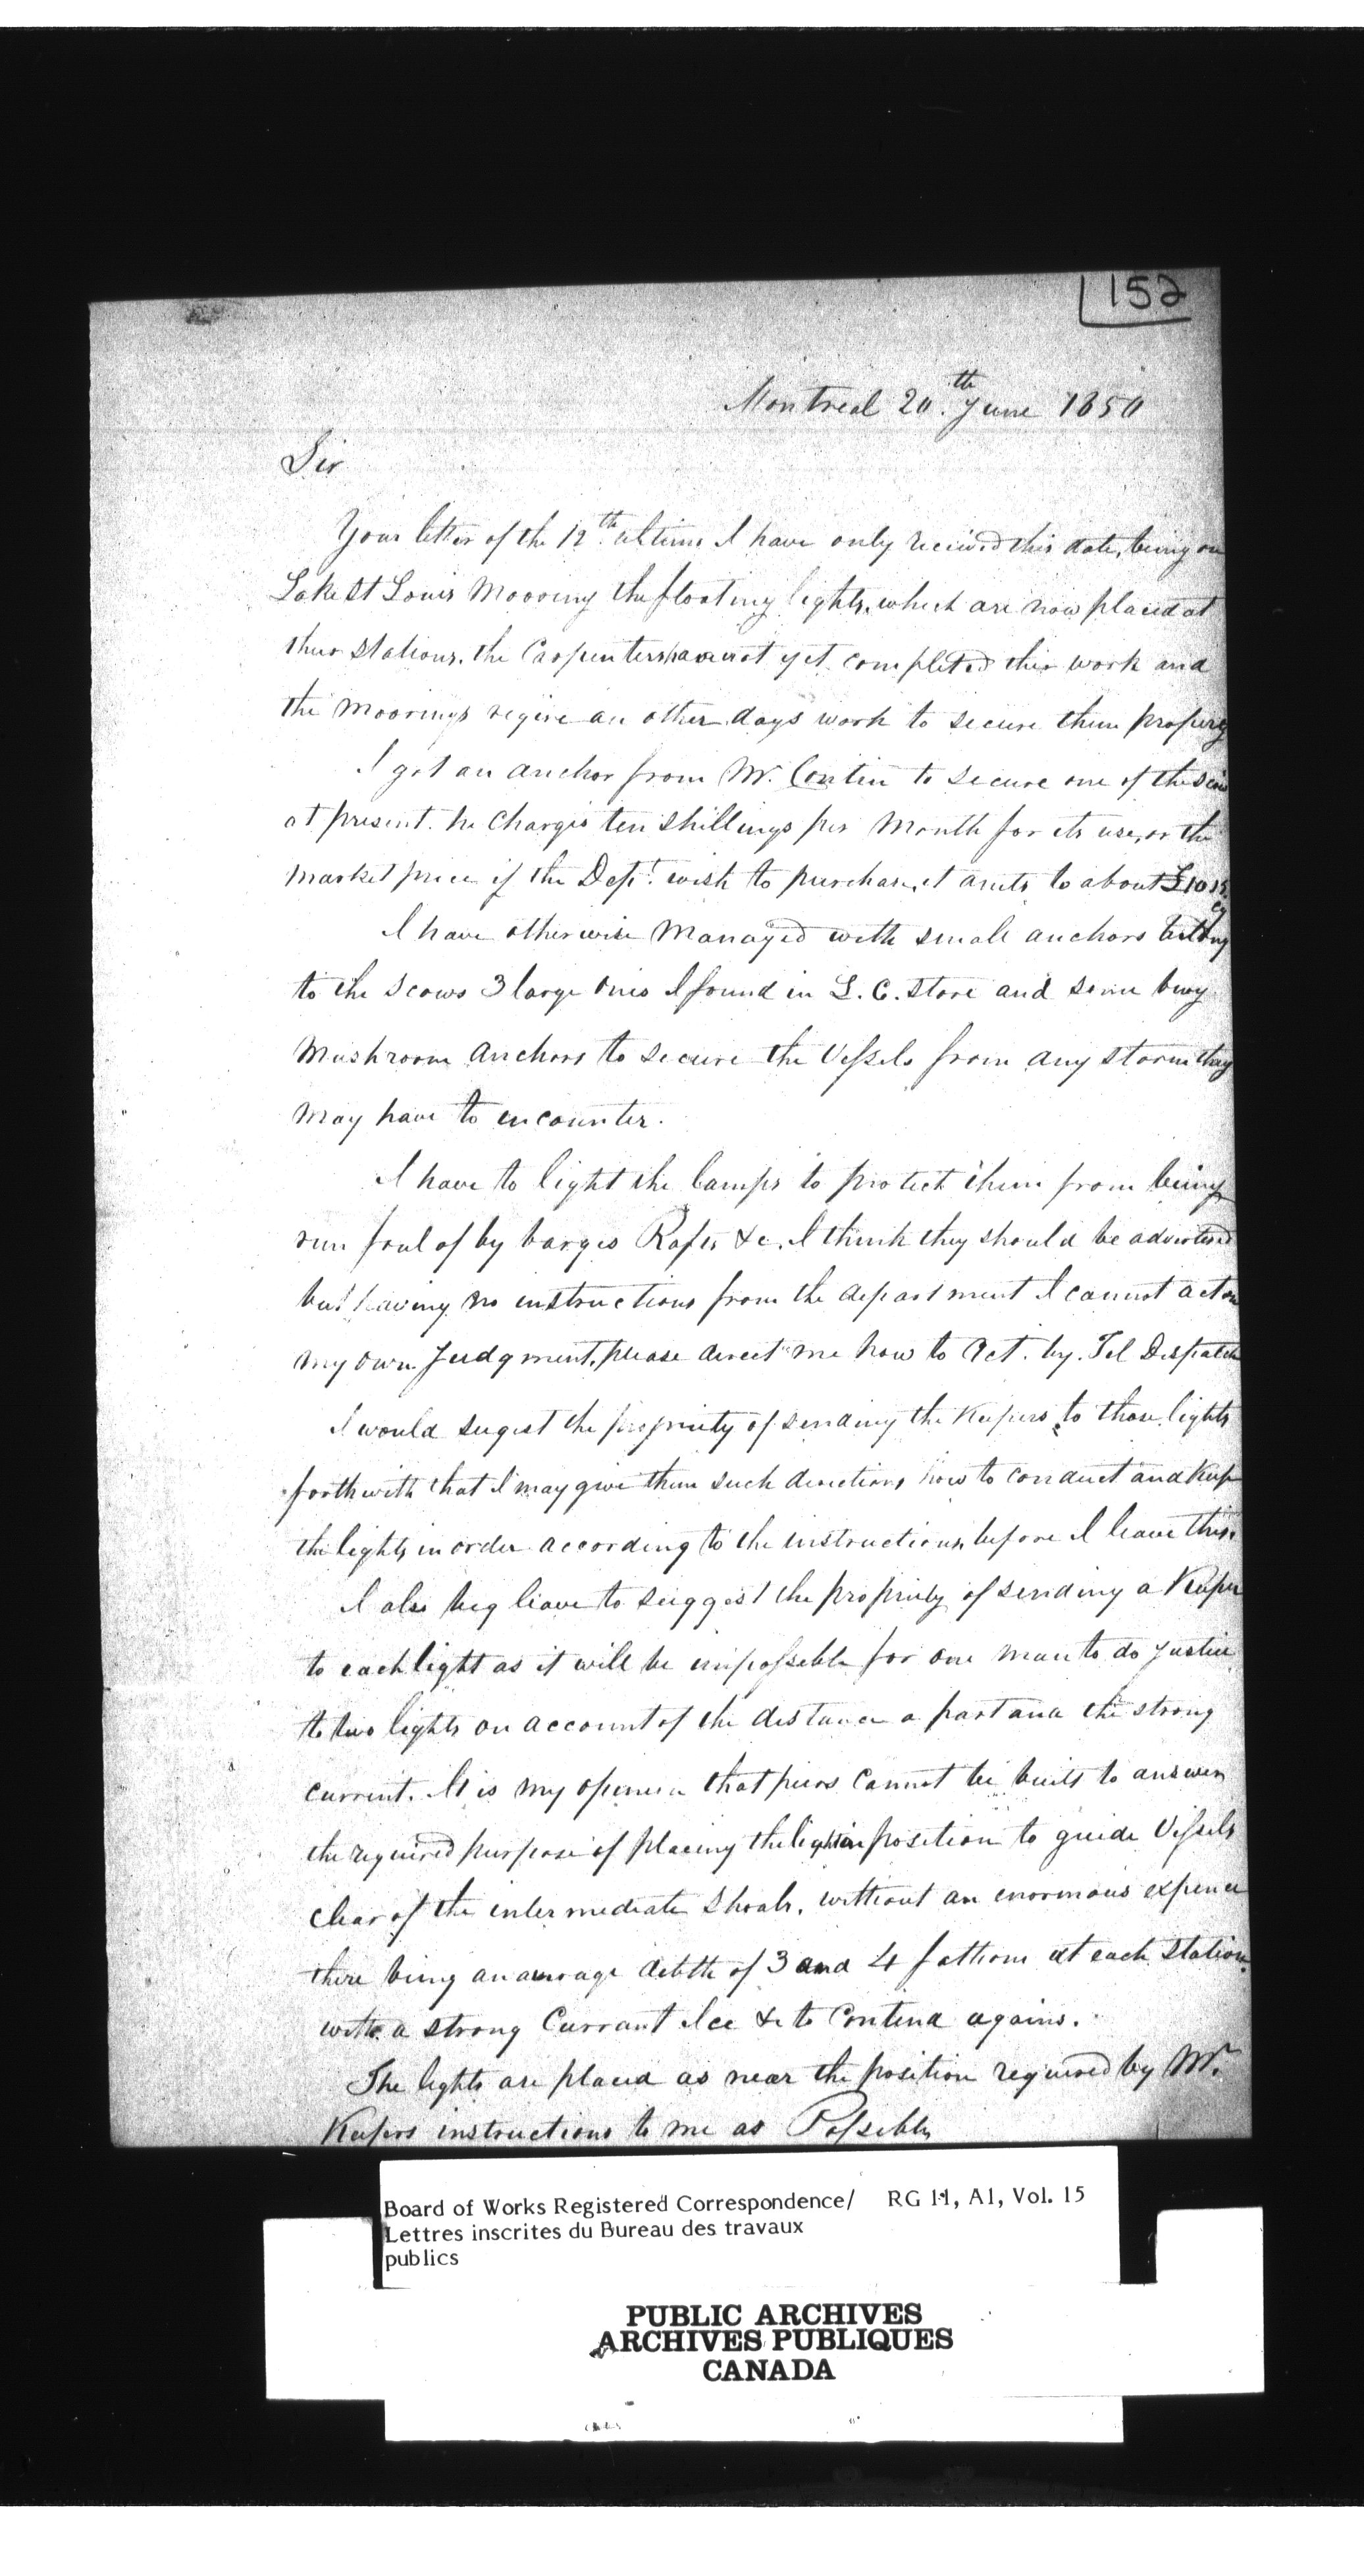 152
Montreal 20.th June 1850
Sir
Your letter of the 12th ultimo I have only received this date, being on
Lake St Louis Mooring the floating lights, which are now placed at
their stations. the Carpenters have not yet completed their work and
the moorings reqire an other days work to secure them propery
I got an anchor from Mr. Contin to secure one of the
at present. he charges ten shillings per Month for its use, or the
market price if the Dept. wish to purchase, it amts to about £10
I have otherwise Managed with small anchors belong
to the Scows 3 large ones I found in L. C. Store and some buoy
Mushroom Anchors to secure the Vessels from any storm they
may have to encounter.
I have to light the lamps to protect them from being
run foul of by barges Rafts &c. I think they should be advertised
but having no instructions from the department I cannot act on
my own Judgment, please direct me how to Act. by. Tel Dispatch
I would sugest the propriety of sending the Keepers to those lights
forthwith that I may give them such directions how to conduct and keep
the lights in order according to the instructions, before I leave this.
I also beg leave to suggest the propriety of sending a Keeper
to each light as it will be impossible for one man to do justice
to two lights on account of the distance a part and the strong
current. It is my openion that piers cannot be built to answer
the required purpose of placing the lights in position to guide Vessels
clear of the intermediate Shoals, without an enormous expence
there being an average debth of 3 and 4 fathom at each station.
with a strong Currant Ice &c to Contend agains.
The lights are placed as near the position required by Mr.
Keefers instructions to me as Possible
Board of Works Registered Correspondence/ RG 11, A1, Vol. 15
Lettres inscrites du Bureau des travaux
publics
PUBLIC ARCHIVES
ARCHIVES PUBLIQUES
CANADA